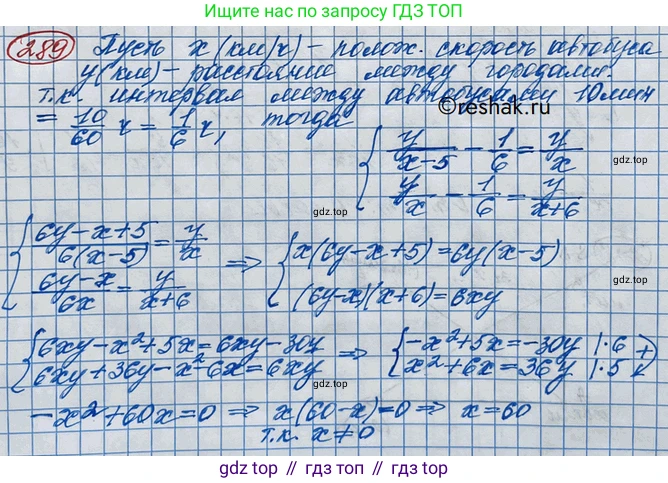 Ищите ответы по запросу ГДЗ ТОП
289 Пусть x (км/ч) – полож. скорость автобуса
y (км) – расстояние между городами.
т.к. интервал между автобусами 10 мин
= 10/60 ч = 1/6 ч, тогда
©reshak.ru
{ y/(x-5) - 1/6 = y/x
y/x - 1/6 = y/(x+6)
gdz.top
{ (6y-x+5)/(6(x-5)) = y/x
(6y-x)/(6x) = y/(x+6)
gdz.top
⇒ { x(6y-x+5)=6y(x-5)
(6y-x)(x+6)=6xy
gdz.top
{ 6xy-x²+5x=6xy-30y
6xy+36y-x²-6x=6xy
⇒ { -x²+5x=-30y |·6
x²+6x=36y |·5 +
-x²+60x=0 ⇒ x(60-x)=0 ⇒ x=60
т.к. x≠0
gdz.top
gdz.top // гдз.top // гдз.топ